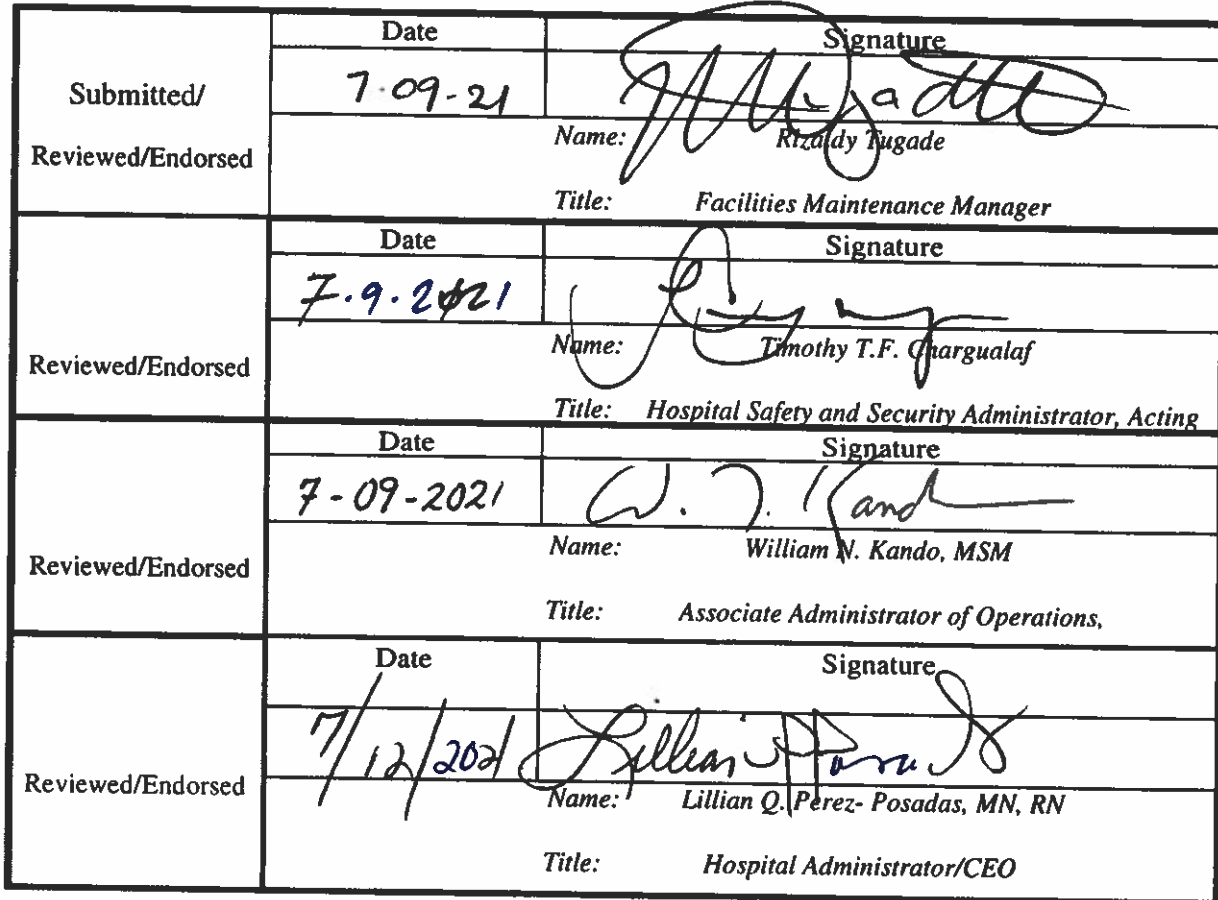 Date Signature
Submitted/
7.09-21
Reviewed/Endorsed
Name: Rizaldy Tugade
Title: Facilities Maintenance Manager
Date Signature
7.9.2021
Reviewed/Endorsed
Name: Timothy T.F. Chargualaf
Title: Hospital Safety and Security Administrator, Acting
Date Signature
7-09-2021
Reviewed/Endorsed
Name: William N. Kando, MSM
Title: Associate Administrator of Operations,
Date Signature
7/12/2021 Lillian
Reviewed/Endorsed
Name: Lillian Q. Perez- Posadas, MN, RN
Title: Hospital Administrator/CEO